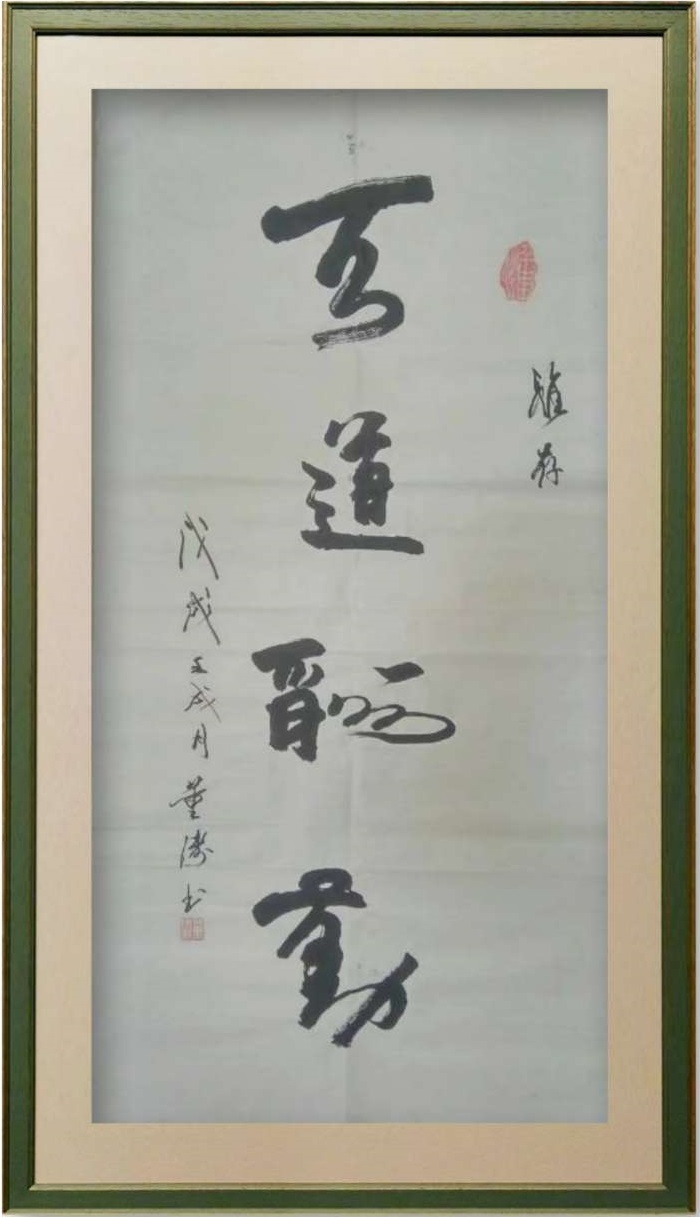 雅存
天道酬勤
戊戌壬戌月董涛书